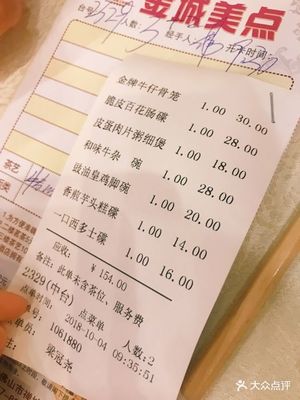 金城美点
台号 2329 人数: 3 经手人: 开卡时间: 730
金牌牛仔骨笼 1.00 30.00
脆皮百花肠碟 1.00 28.00
皮蛋肉片粥细煲 1.00 18.00
和味牛杂 碗 1.00 28.00
豉油皇鸡脚碗 1.00 20.00
香煎芋头糕碟 1.00 14.00
一口西多士碟 1.00 16.00
应收: ¥ 154.00
备注: 此单未含茶位、服务费
2329(中台) 点菜单 人数:2
点单时间: 2018-10-04 09:35:51
单员: 1061880
主: 梁冠尧
茶芥
大众点评